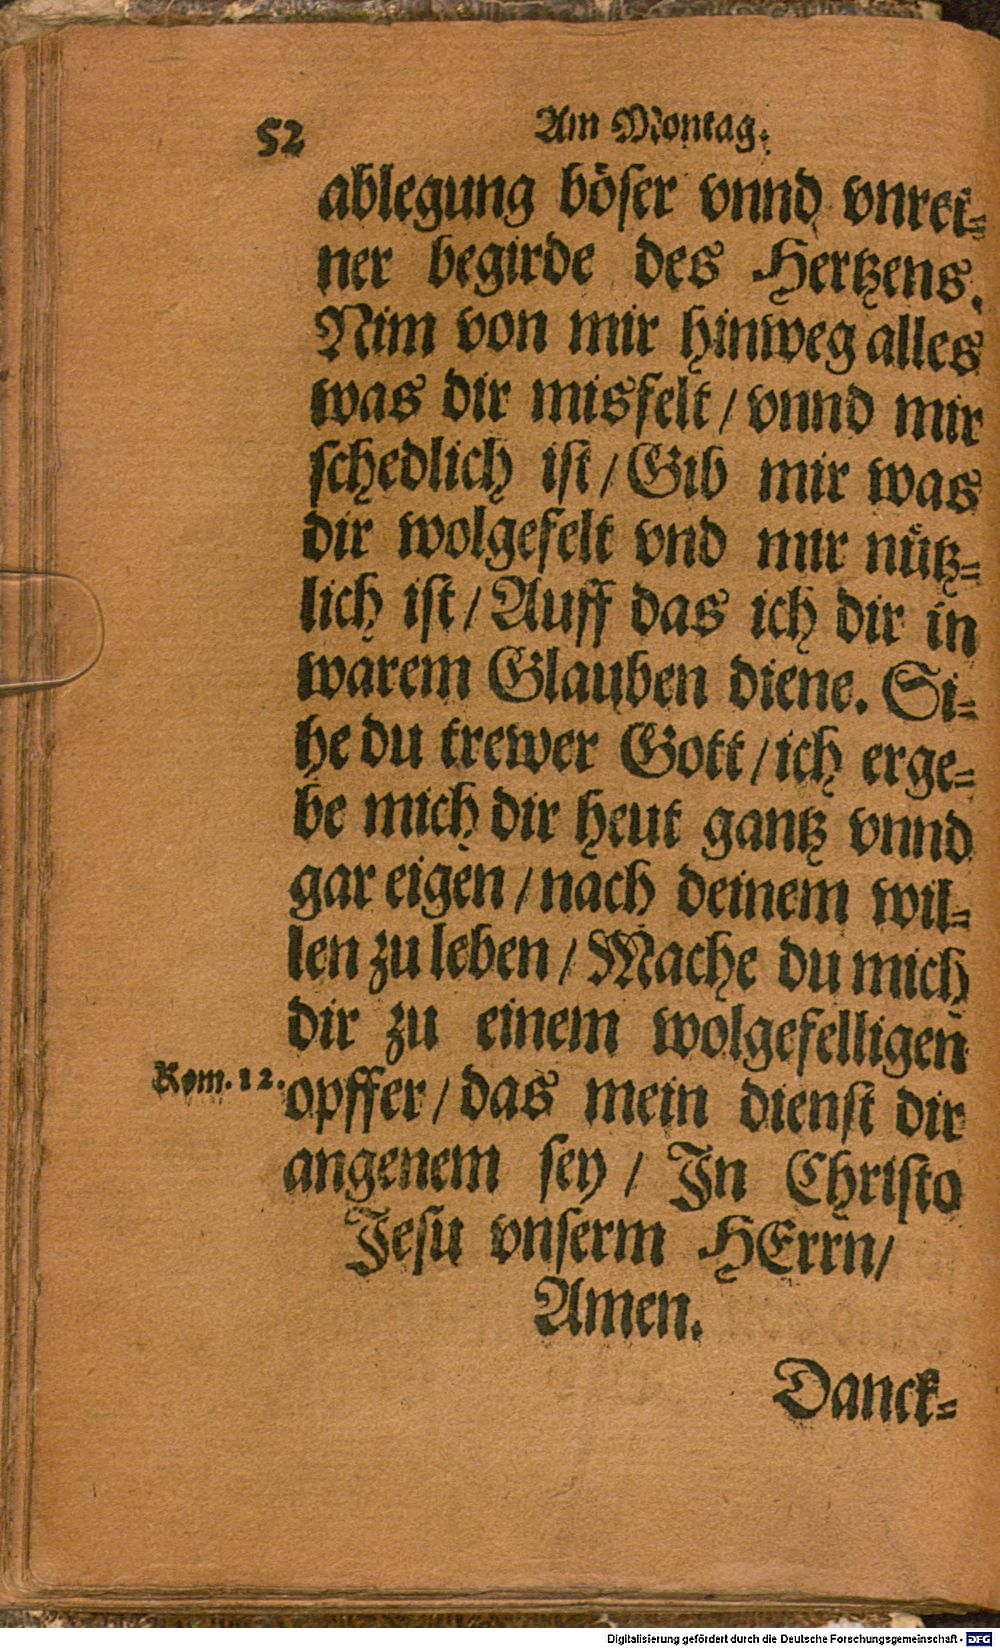 52 Am Montag.
ablegung böser vnnd vnrei-
ner begirde des Hertzens.
Nim von mir hinweg alles
was dir misfelt / vnnd mir
schedlich ist / Gib mir was
dir wolgefelt vnd mir nütz-
lich ist / Auff das ich dir in
warem Glauben diene. Si-
he du trewer Gott / ich erge-
be mich dir heut gantz vnnd
gar eigen / nach deinem wil-
len zu leben / Mache du mich
dir zu einem wolgefelligen
Rom. 12. opffer / das mein dienst dir
angenem sey / In Christo
Jesu vnserm HErrn /
Amen.
Danck-
Digitalisierung gefördert durch die Deutsche Forschungsgemeinschaft - DFG